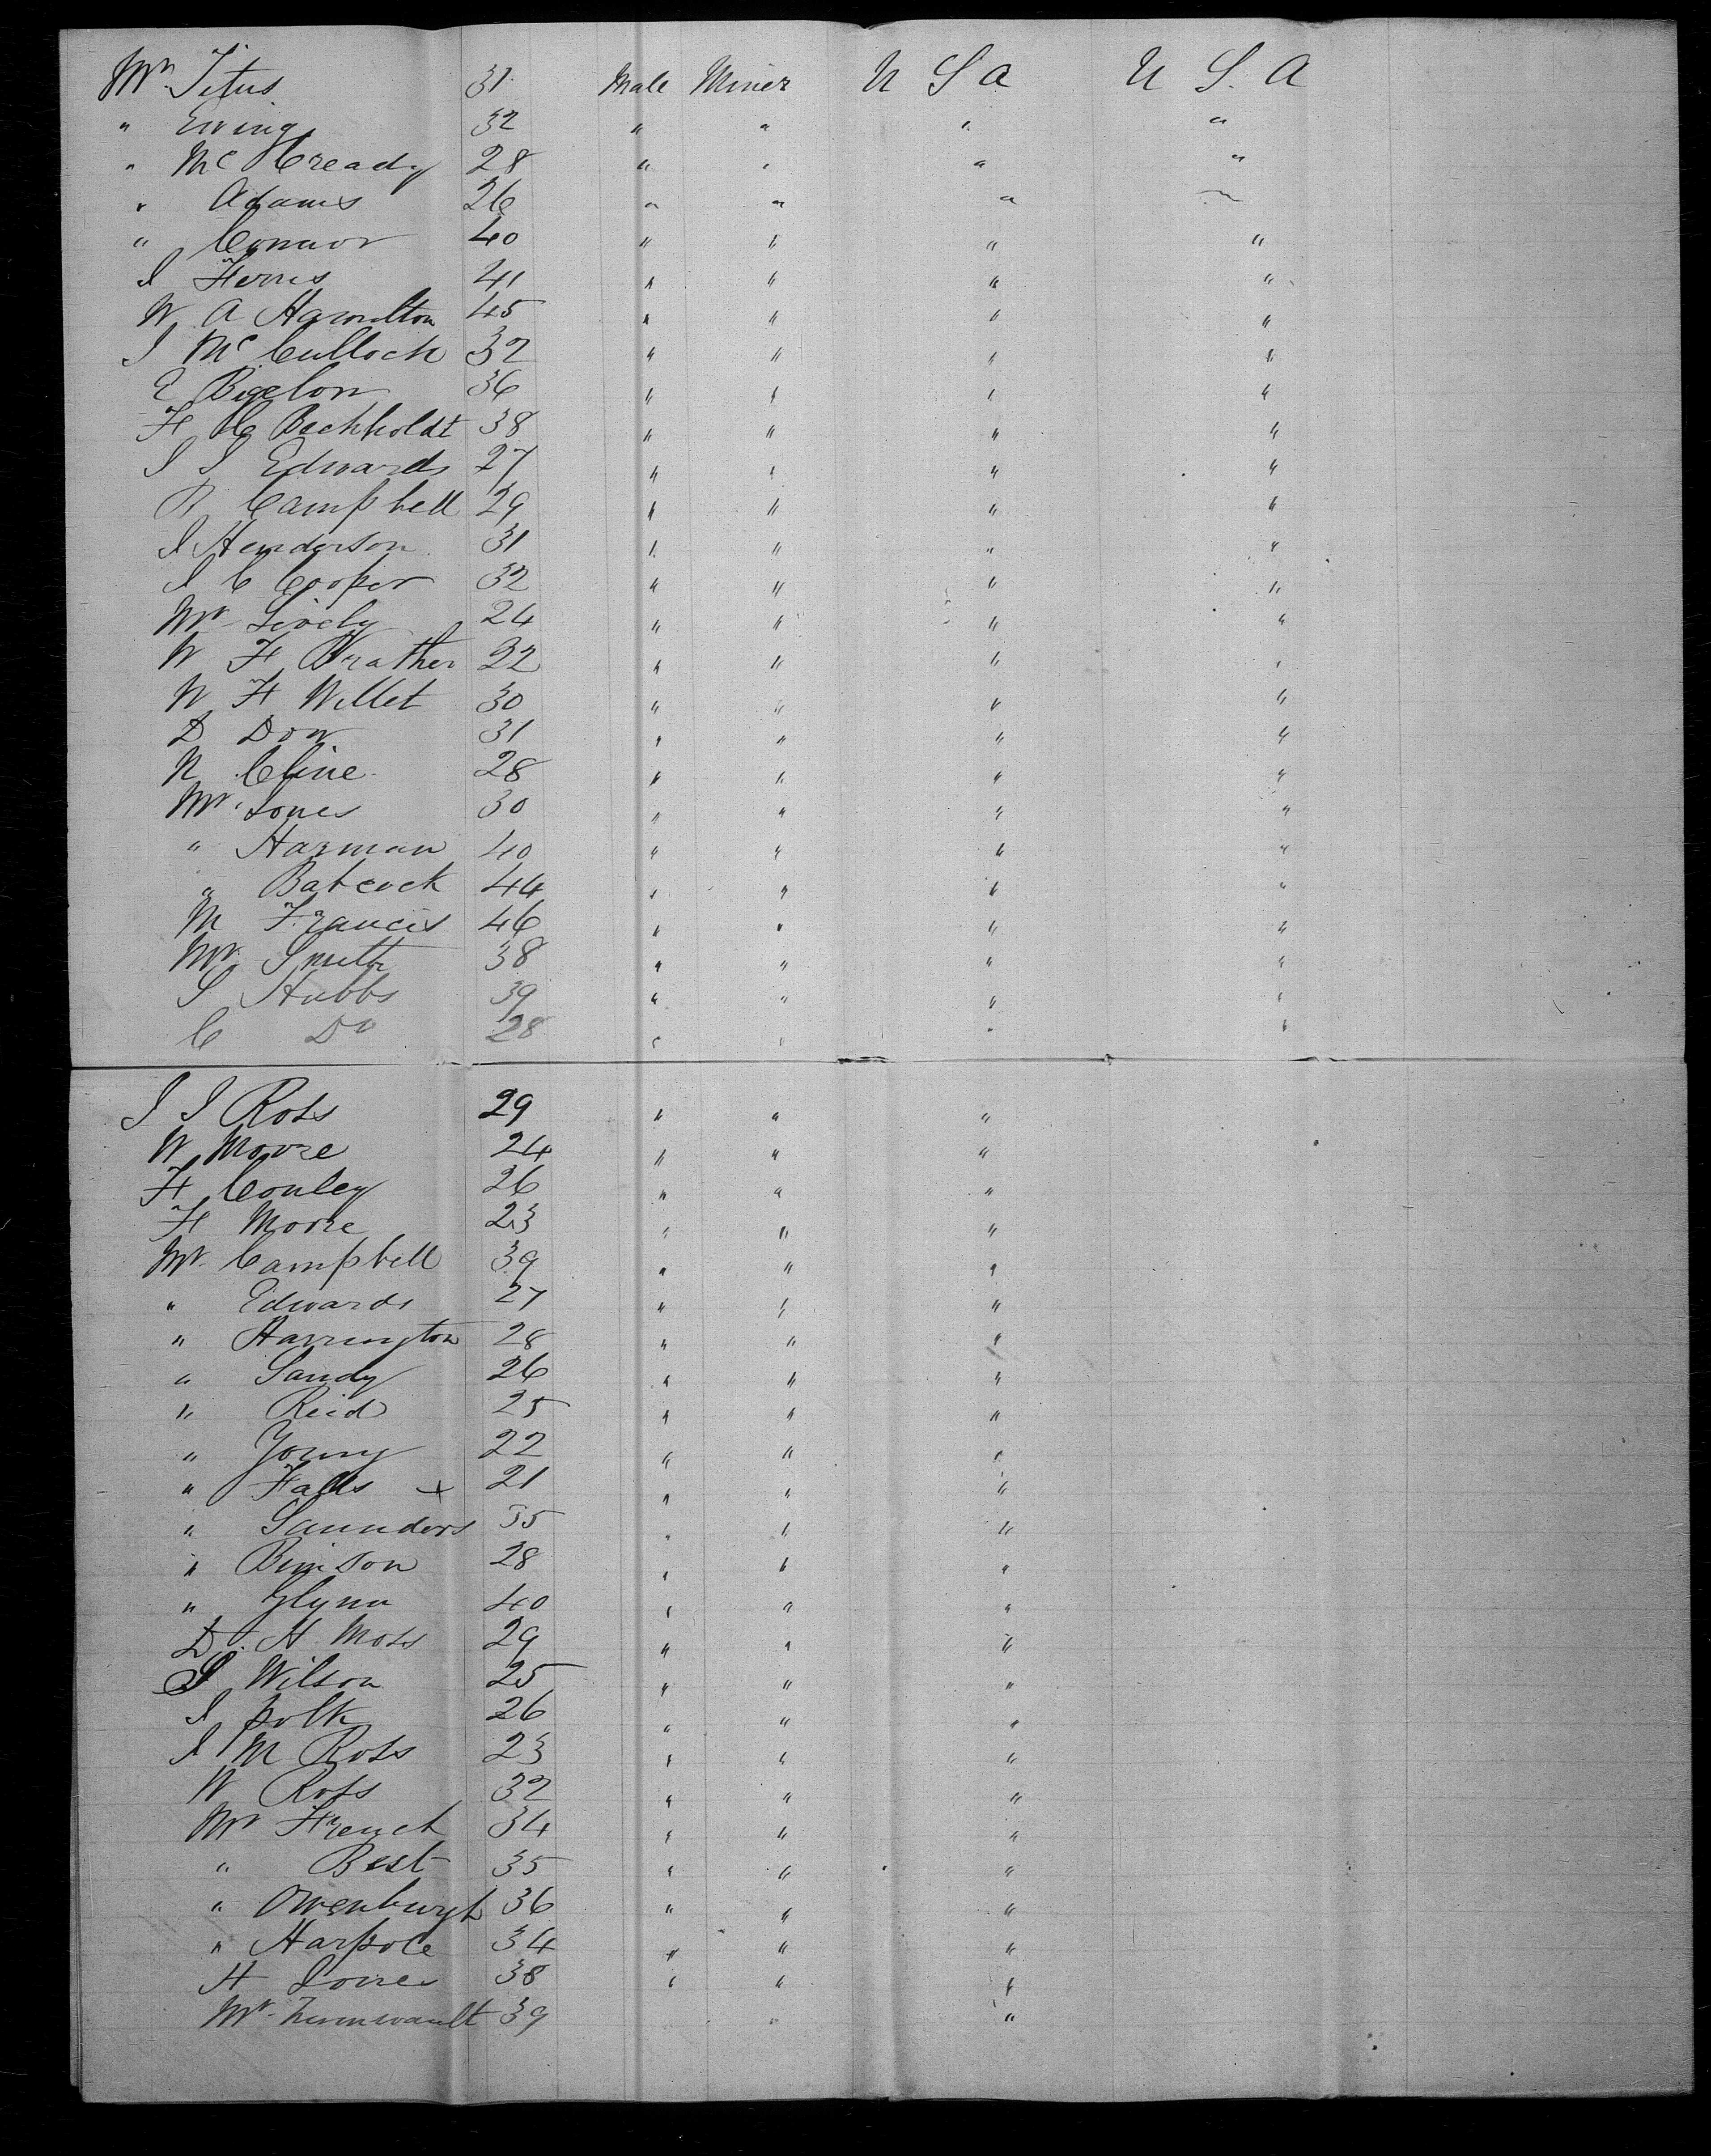 Mr. Titus 31 Male Miner U S A U S. A
" Ewing 32 " " " "
" Mc Cready 28 " " " "
" Adams 26 " " " "
" Connor 40 " " " "
J Ferris 41 " " " "
W A Hamilton 45 " " " "
J Mc Culloch 32 " " " "
E Bigelow 36 " " " "
F C Bechholdt 38 " " " "
J J Edwards 27 " " " "
R Campbell 29 " " " "
J Henderson 31 " " " "
J C Cooper 32 " " " "
Mr Lively 24 " " " "
W F Prather 22 " " " "
W F Willet 30 " " " "
D Dow 31 " " " "
N Cline 28 " " " "
Mr Jones 30 " " " "
" Harman 40 " " " "
" Babcock 44 " " " "
M Francis 46 " " " "
Mr Smith 38 " " " "
S Hubbs 39 " " " "
C Do 28 " " " "
J J Ross 29 " " "
W Moore 24 " " "
F Conley 26 " " "
F Moore 23 " " "
Mr. Campbell 39 " " "
" Edwards 27 " " "
" Harrington 28 " " "
" Sandy 26 " " "
" Reid 25 " " "
" Young 22 " " "
" Falls + 21 " " "
" Saunders 35 " " "
" Binison 28 " " "
" Glynn 40 " " "
D. H. Moss 29 " " "
S Wilson 25 " " "
J Polk 26 " " "
J M Ross 23 " " "
W Ross 32 " " "
Mr French 34 " " "
" Best 35 " " "
" Owenburgh 36 " " "
" Harpole 34 " " "
H Jones 38 " " "
Mr. Zumwault 39 " "